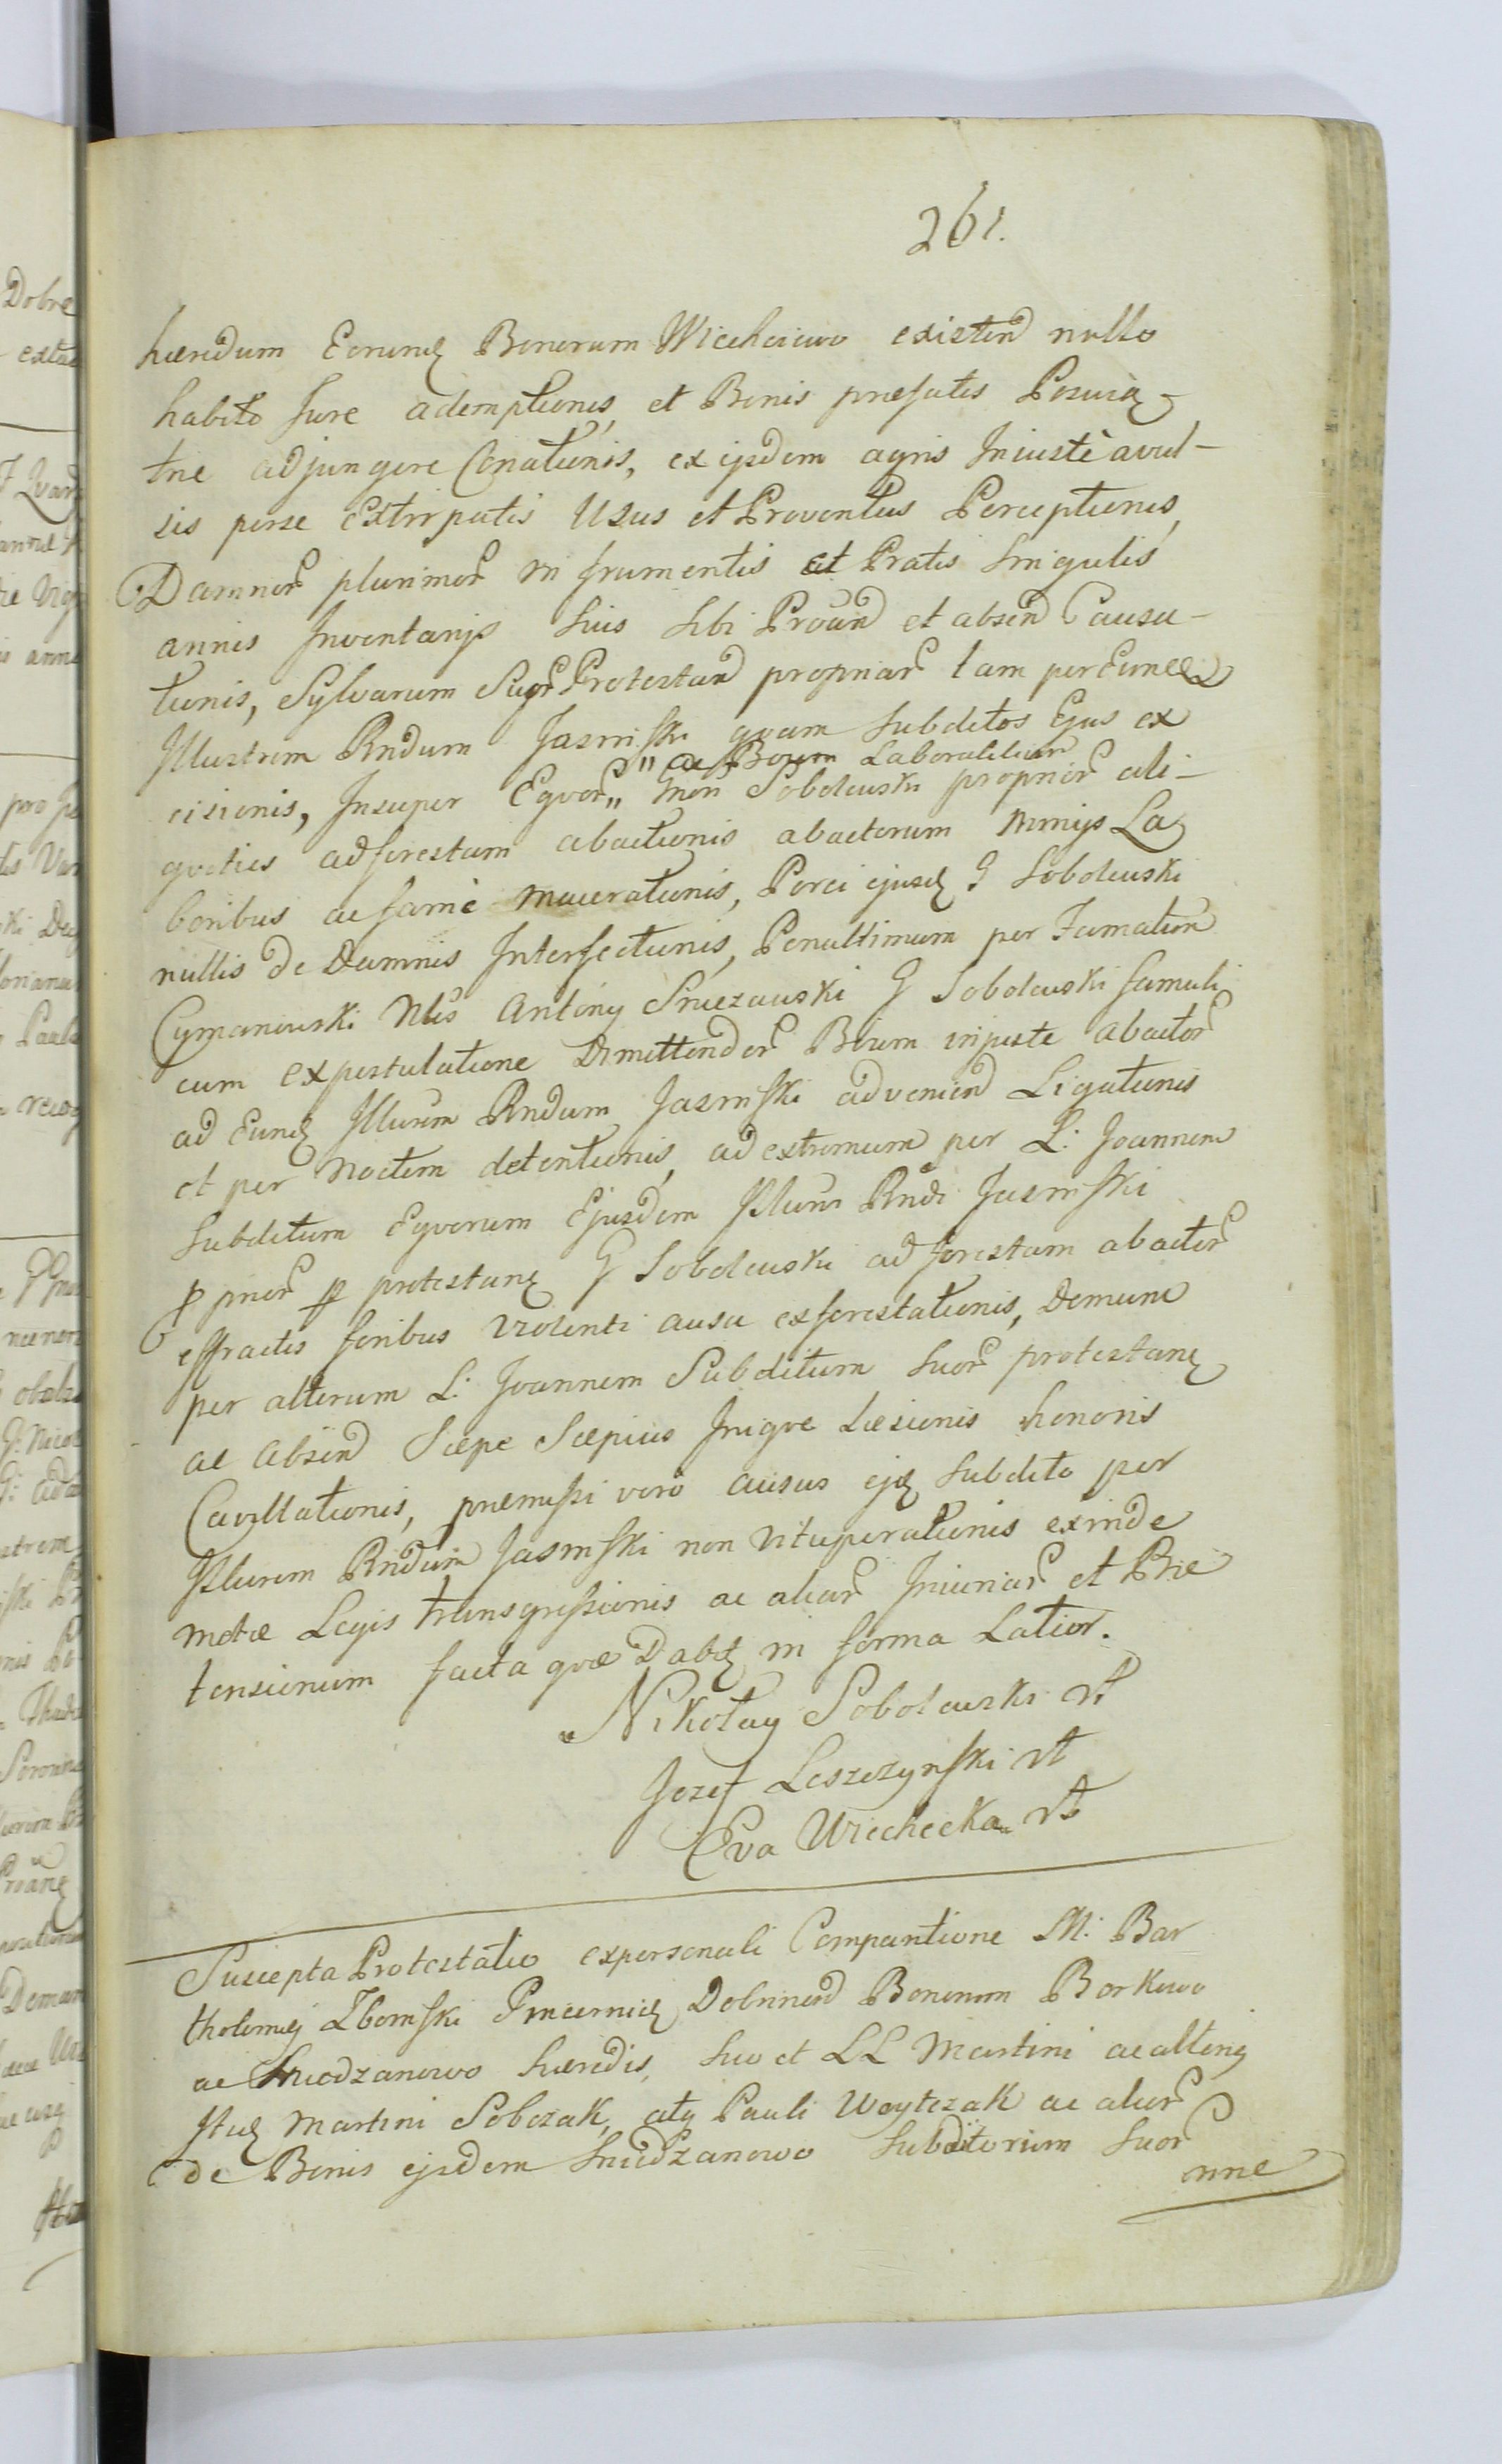 261.
hæredum Eorund Bonorum Wiecheciewo existen nullo
habito Jure ademptionis, et Bonis præfatis
tne adjungere Conationis, ex ijsdem agris Iniustè avul-
sis perse extirpatis Usus et Proventus Perceptionis,
Damnor plurimor in frumentis et Pratis Singulis
annis Inventarijs Suis Sibi Proan et absen Causa-
tionis, Sylvarum Suar Protestan propriar tam per Eund
Illustrem Rndum Jasinski quam Subditos Ejus ex
" ac Boum Laboralium
cisionis, Insuper Eqvor " Gnon Sobolewski proprior ali-
qvoties ad forestam abactionis abactorum nimijs La
boribus ac famè macerationis, Porci ejusd G Sobolewski
nullis de Damnis Interfectionis, Penultimum per Famatum
Cymanowski Nlis Antony Sniezawski G Sobolewski famuli
cum expostulatione Dimittendor Boum injuste abactor
ad Eund Illurem Rndum Jasinski advenien Ligationis
et per Noctem detentionis, ad extremum per L: Joannem
Subditum Eqvorum Ejusdem Illuris Rndi Jasinski
p pnor p protestan G Sobolewski ad forestam abactor
effractis foribus violenti ausu exforestationis, Demum
per alterum L: Joannem Subditum Suor protestan
ac Absen Sæpe Sæpius Iniqve Læsionis honoris
Cavillationis, præmissi vero ausus ejd Subdito per
Illurem Rndum Jasinski non Vituperationis exinde
metæ Legis transgressionis ac aliar Iniuriar et Præ
tensionum facta qvæ Dabt in forma Latior.
Nikołay Sobolewski mp
Jozef Leszczynski mp
Eva Wiechecka mp
Suscepta Protestatio ex personali Comparitione M: Bar
tholomæj Zboinski Pincernid Dobrinen Bonorum Borkowo
ac Sniedzanowo hæredis, Suo et LL Martini ac alterij
Itid Martini Sobczak, atq Pauli Woytczak ac alior
de Bonis ejsdem Sniedzanowo Subditorum Suor
nne